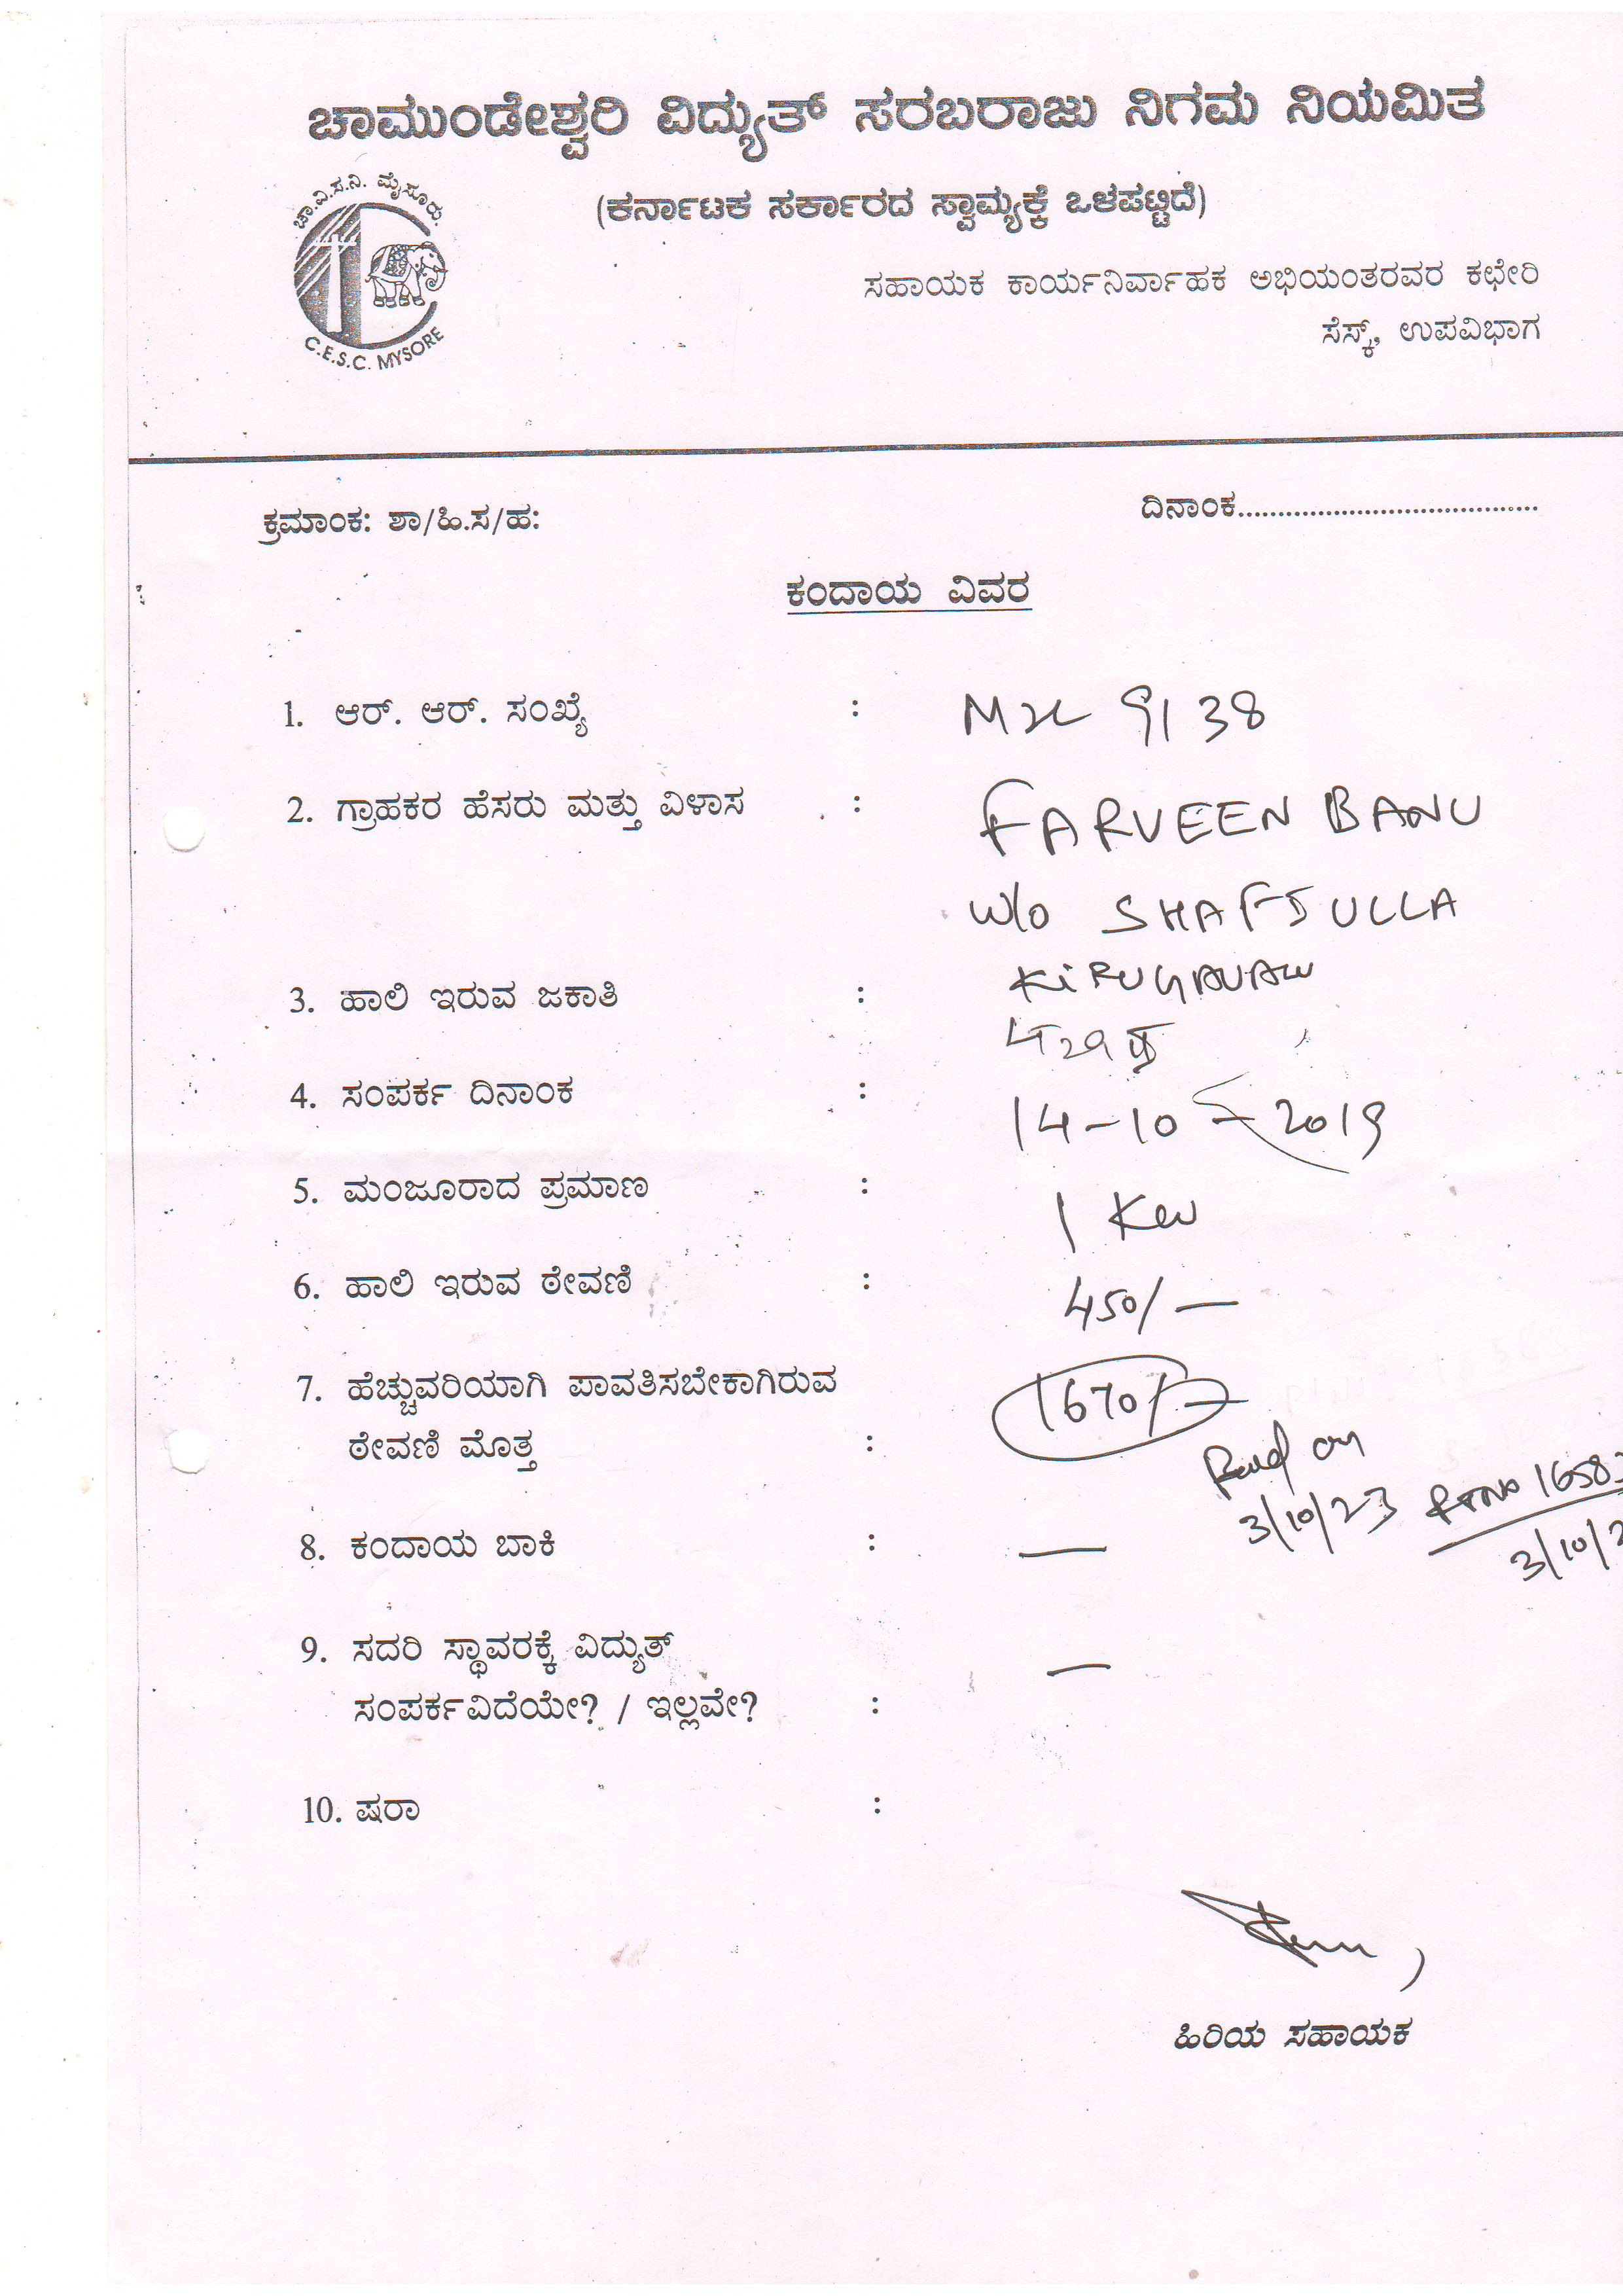 ಚಾಮುಂಡೇಶ್ವರಿ ವಿದ್ಯುತ್ ಸರಬರಾಜು ನಿಗಮ ನಿಯಮಿತ
ಚಾ.ವಿ.ಸ.ನಿ. ಮೈಸೂರು.
C.E.S.C. MYSORE
(ಕರ್ನಾಟಕ ಸರ್ಕಾರದ ಸ್ವಾಮ್ಯಕ್ಕೆ ಒಳಪಟ್ಟಿದೆ)
ಸಹಾಯಕ ಕಾರ್ಯನಿರ್ವಾಹಕ ಅಭಿಯಂತರವರ ಕಛೇರಿ
ಸೆಸ್ಕ್, ಉಪವಿಭಾಗ
ಕ್ರಮಾಂಕ: ಶಾ/ಹಿ.ಸ/ಹ: ದಿನಾಂಕ.....................................
ಕಂದಾಯ ವಿವರ
1. ಆರ್. ಆರ್. ಸಂಖ್ಯೆ : 9138
2. ಗ್ರಾಹಕರ ಹೆಸರು ಮತ್ತು ವಿಳಾಸ : FARVEEN BANU
w/o SHAFIULLA
3. ಹಾಲಿ ಇರುವ ಜಕಾತಿ :
4. ಸಂಪರ್ಕ ದಿನಾಂಕ : 14-10-2019
5. ಮಂಜೂರಾದ ಪ್ರಮಾಣ : 1 Kw
6. ಹಾಲಿ ಇರುವ ಠೇವಣಿ : 450/-
7. ಹೆಚ್ಚುವರಿಯಾಗಿ ಪಾವತಿಸಬೇಕಾಗಿರುವ 1670/-
ಠೇವಣಿ ಮೊತ್ತ : Paid on
3/10/23 1658
3/10/2
8. ಕಂದಾಯ ಬಾಕಿ : —
9. ಸದರಿ ಸ್ಥಾವರಕ್ಕೆ ವಿದ್ಯುತ್ —
ಸಂಪರ್ಕವಿದೆಯೇ? / ಇಲ್ಲವೇ? :
10. ಷರಾ :
ಹಿರಿಯ ಸಹಾಯಕ